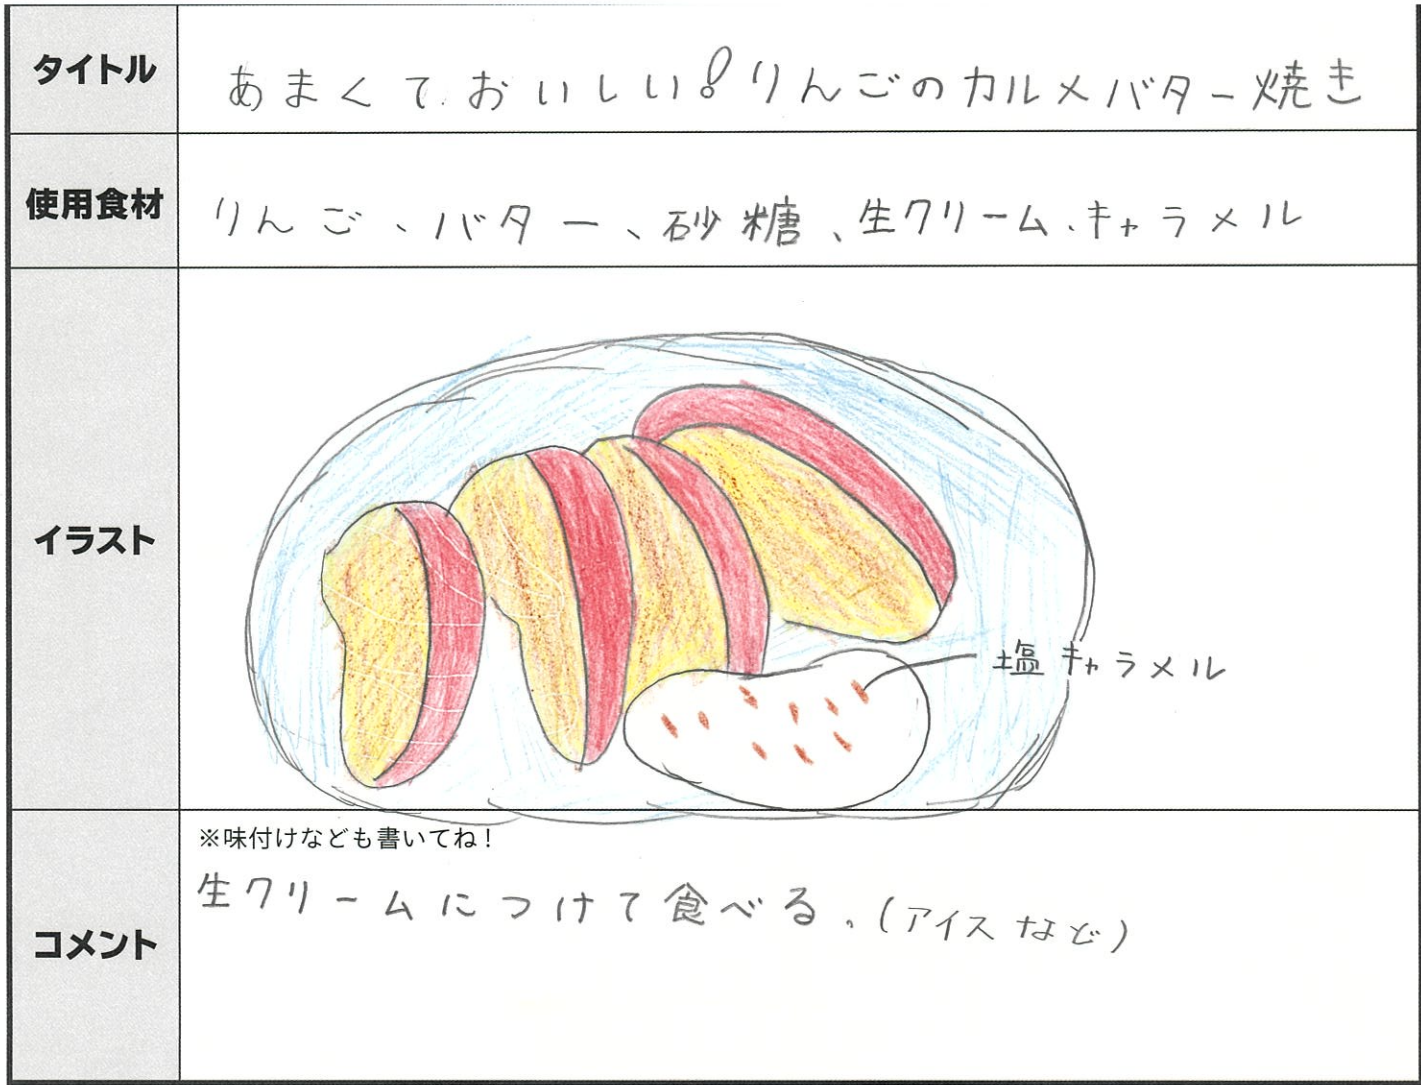 タイトル
あまくて.おいしい!りんごのカルメバター焼き
使用食材
りんご、バター、砂糖、生クリーム、キャラメル
イラスト
塩キャラメル
コメント
※味付けなども書いてね!
生クリームにつけて食べる。(アイスなど)